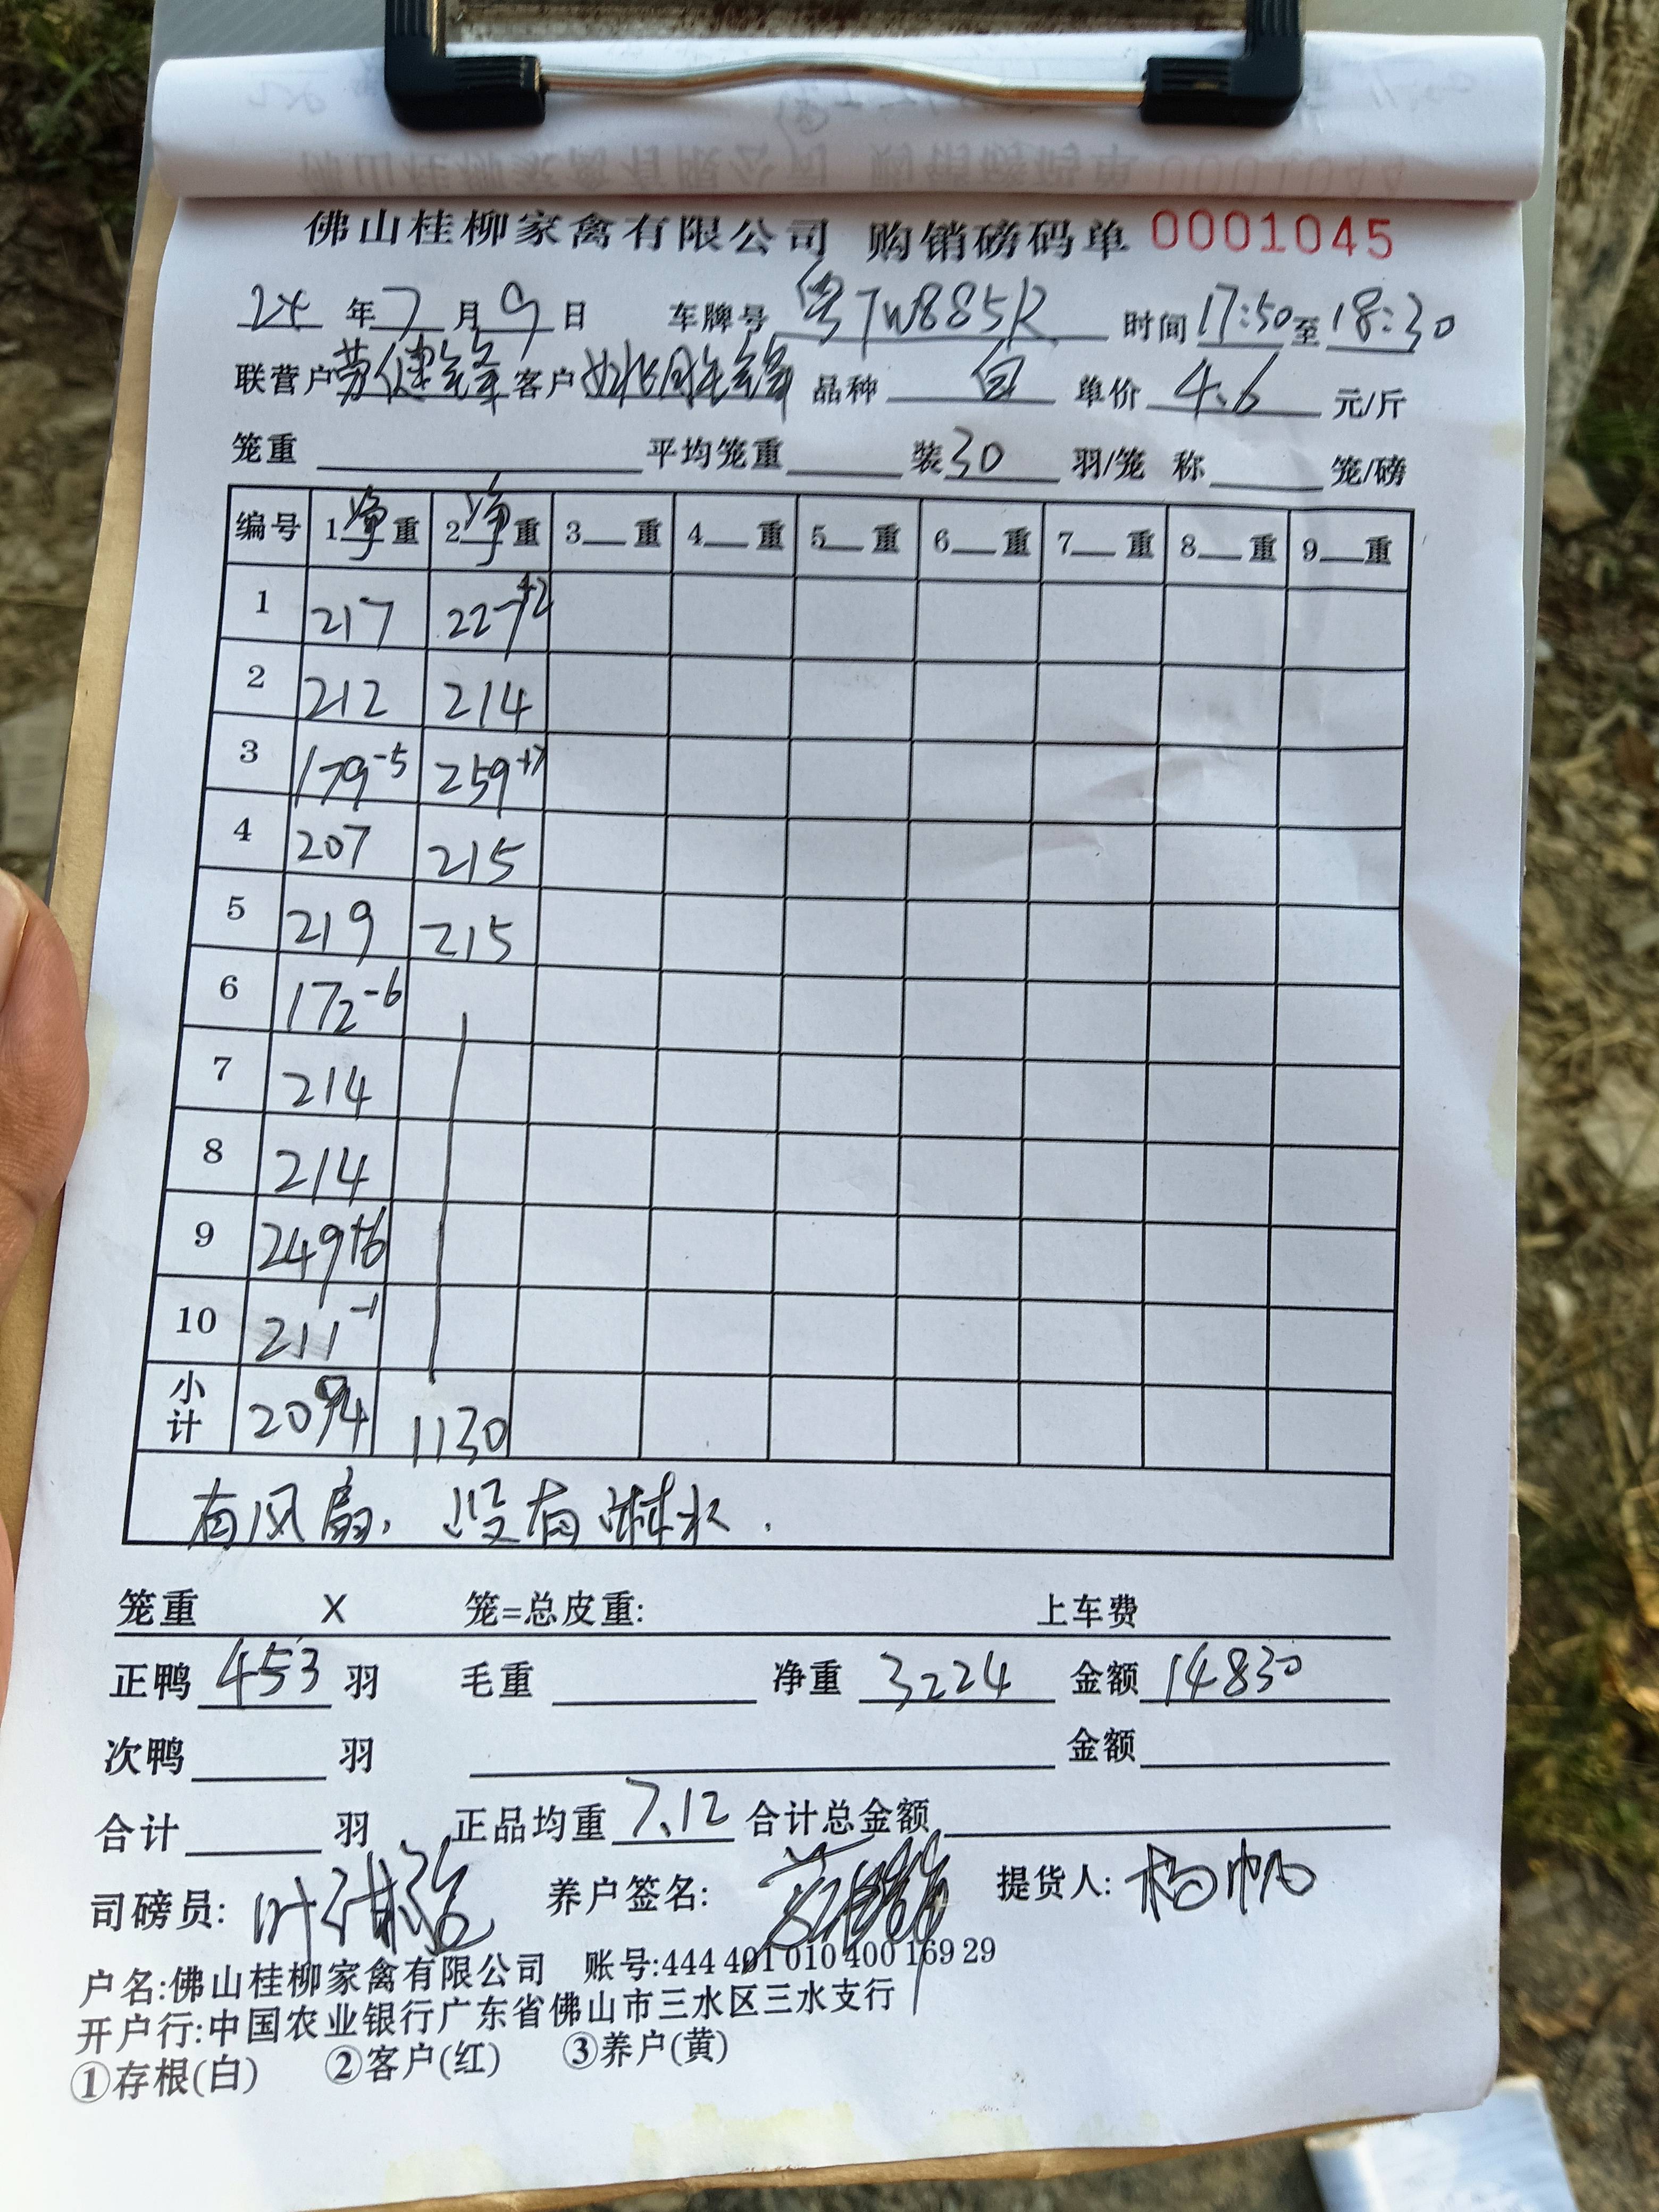 佛山桂柳家禽有限公司 购销磅码单 0001045
24 年 7 月 9 日 车牌号 粤TW885R 时间 17:50 至 18:30
联营户 劳健锋 客户 锋 品种 白 单价 4.6 元/斤
笼重 平均笼重 装 30 羽/笼 称 笼/磅
编号 1 净 重 2 净 重 3 重 4 重 5 重 6 重 7 重 8 重 9 重
1 217 227+2
2 212 214
3 179-5 259+7
4 207 215
5 219 215
6 172-6
7 214
8 214
9 249+6
10 211-1
小计 2094 1130
有风扇，没有淋水.
笼重 X 笼=总皮重: 上车费
正鸭 453 羽 毛重 净重 3224 金额 14830
次鸭 羽 金额
合计 羽 正品均重 7.12 合计总金额
司磅员: 叶 养户签名: 提货人: 杨帆
户名:佛山桂柳家禽有限公司 账号:444 401 010 400 169 29
开户行:中国农业银行广东省佛山市三水区三水支行
①存根(白) ②客户(红) ③养户(黄)